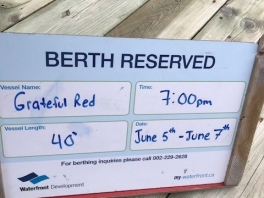 BERTH RESERVED
Vessel Name:
Grateful Red
Time:
7:00pm
Vessel Length:
40'
Date:
June 5th - June 7th
For berthing inquiries please call 902-229-2628
Waterfront Development
my-waterfront.ca